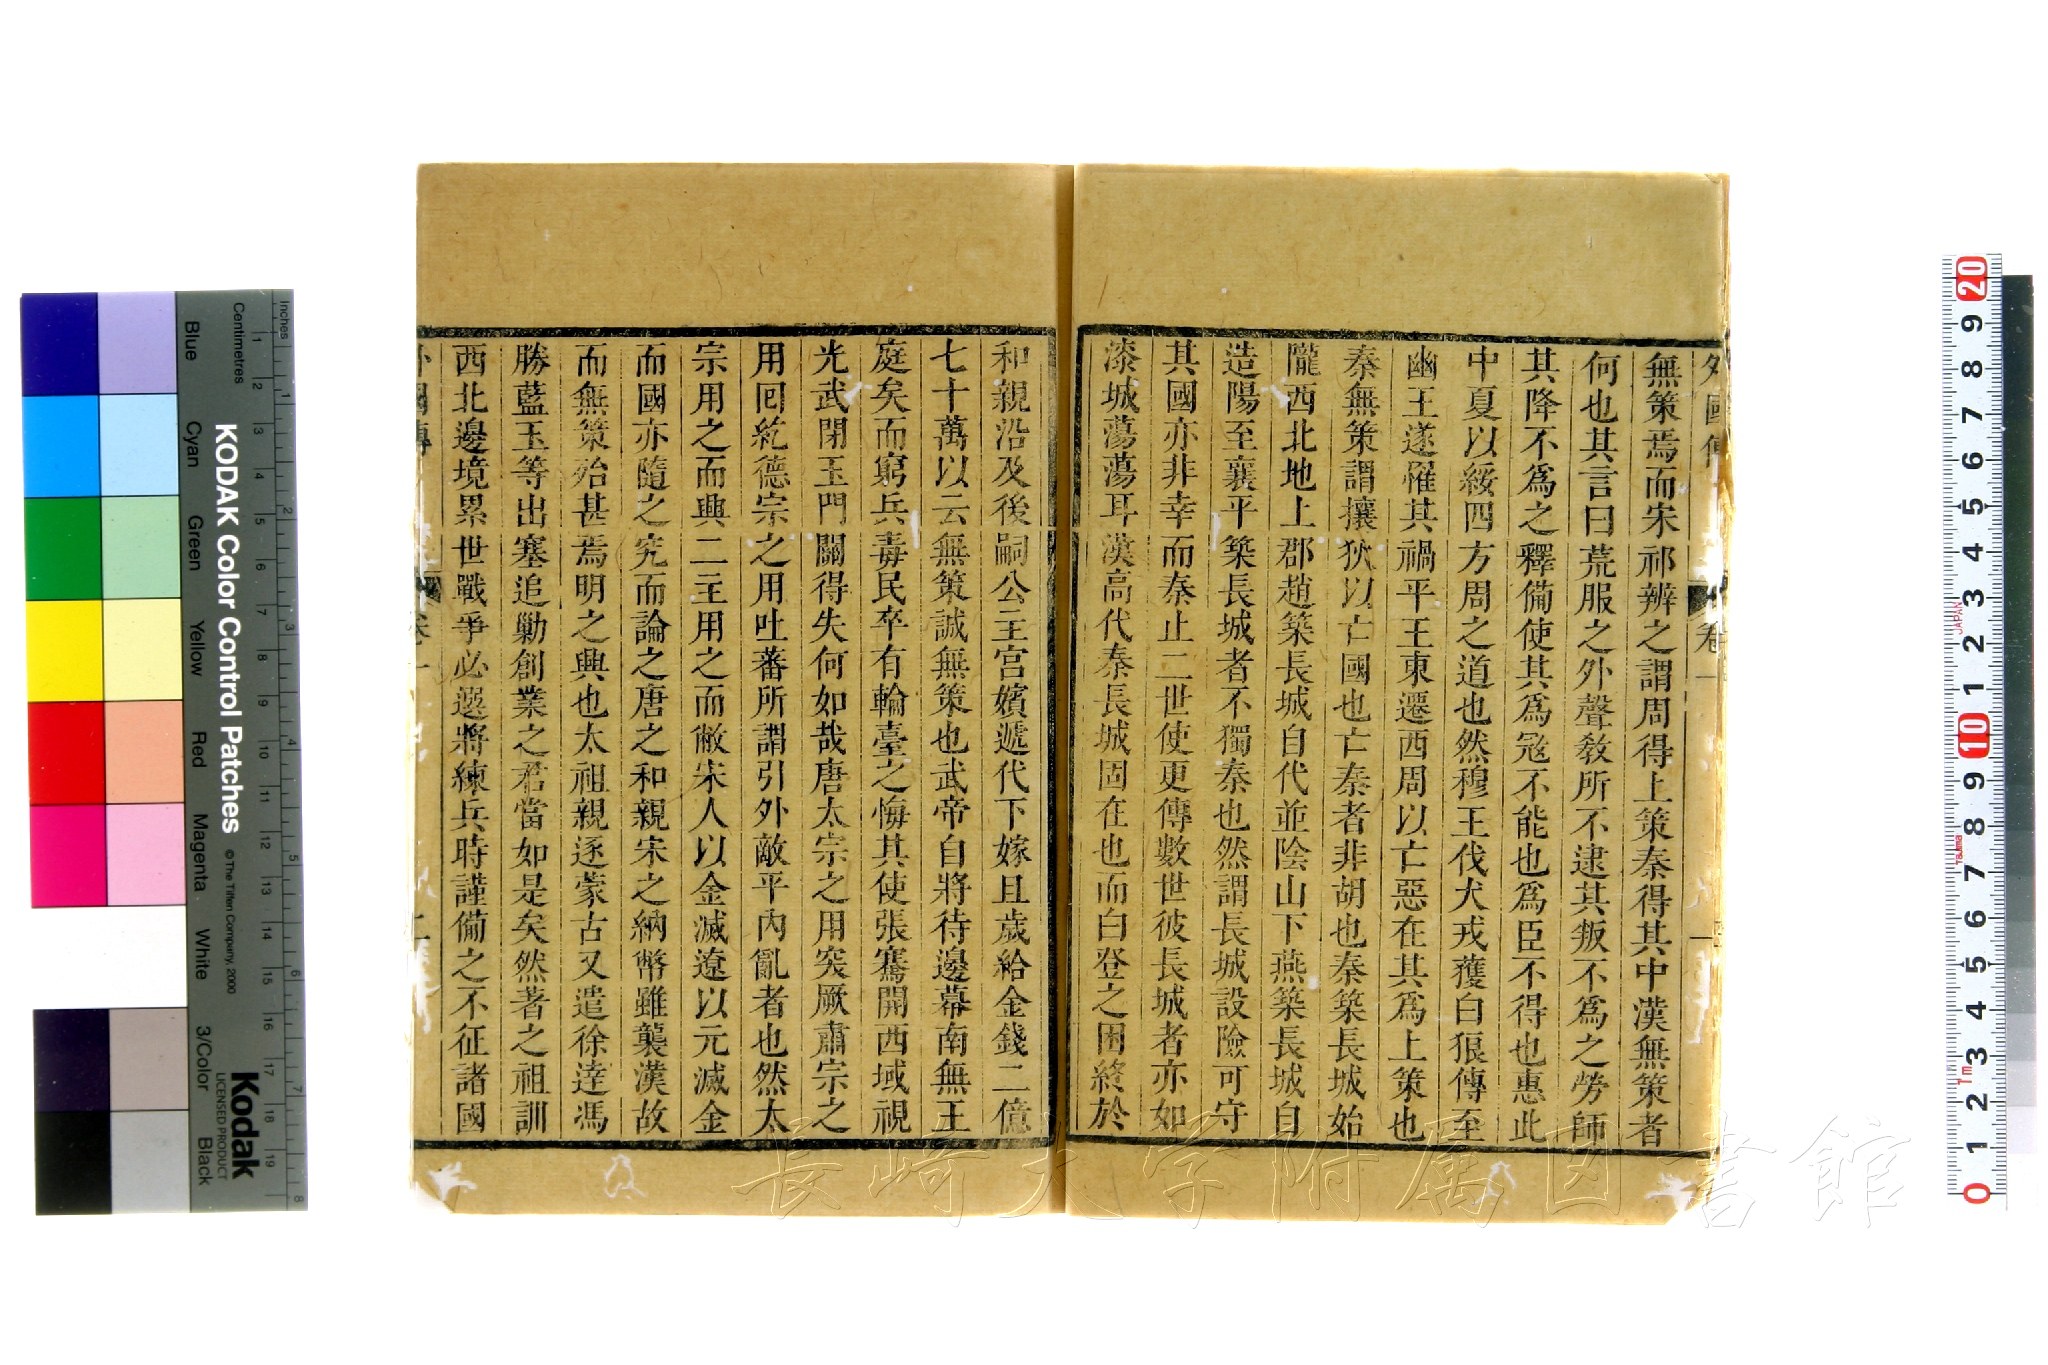 外國傳 卷一
無策焉而宋祁辨之謂周得上策秦得其中漢無策者
何也其言曰荒服之外聲敎所不逮其叛不爲之勞師
其降不爲之釋備使其爲冦不能也爲臣不得也惠此
中夏以綏四方周之道也然穆王伐犬戎獲白狼傳至
幽王遂罹其禍平王東遷西周以亡惡在其爲上策也
秦無策謂攘狄以亡國也亡秦者非胡也秦築長城始
隴西北地上郡趙築長城自代並陰山下燕築長城自
造陽至襄平築長城者不獨秦也然謂長城設險可守
其國亦非幸而秦止二世使更傳數世彼長城者亦如
漆城蕩蕩耳漢高代秦長城固在也而白登之困終於
和親沿及後嗣公主宮嬪遞代下嫁且歲給金錢二億
七十萬以云無策誠無策也武帝自將待邊幕南無王
庭矣而窮兵毒民卒有輪臺之悔其使張騫開西域視
光武閉玉門關得失何如哉唐太宗之用突厥肅宗之
用回紇德宗之用吐蕃所謂引外敵平內亂者也然太
宗用之而興二主用之而敝宋人以金滅遼以元滅金
而國亦隨之究而論之唐之和親宋之納幣雖襲漢故
而無策殆甚焉明之興也太祖親逐蒙古又遣徐逹馮
勝藍玉等出塞追勦創業之君當如是矣然著之祖訓
西北邊境累世戰爭必選將練兵時謹備之不征諸國
外國傳 卷一 二
長崎大学附属図書館
KODAK Color Control Patches
© The Tiffen Company, 2000
Kodak
LICENSED PRODUCT
Inches
Centimetres
Blue
Cyan
Green
Yellow
Red
Magenta
White
3/Color
Black
JAPAN